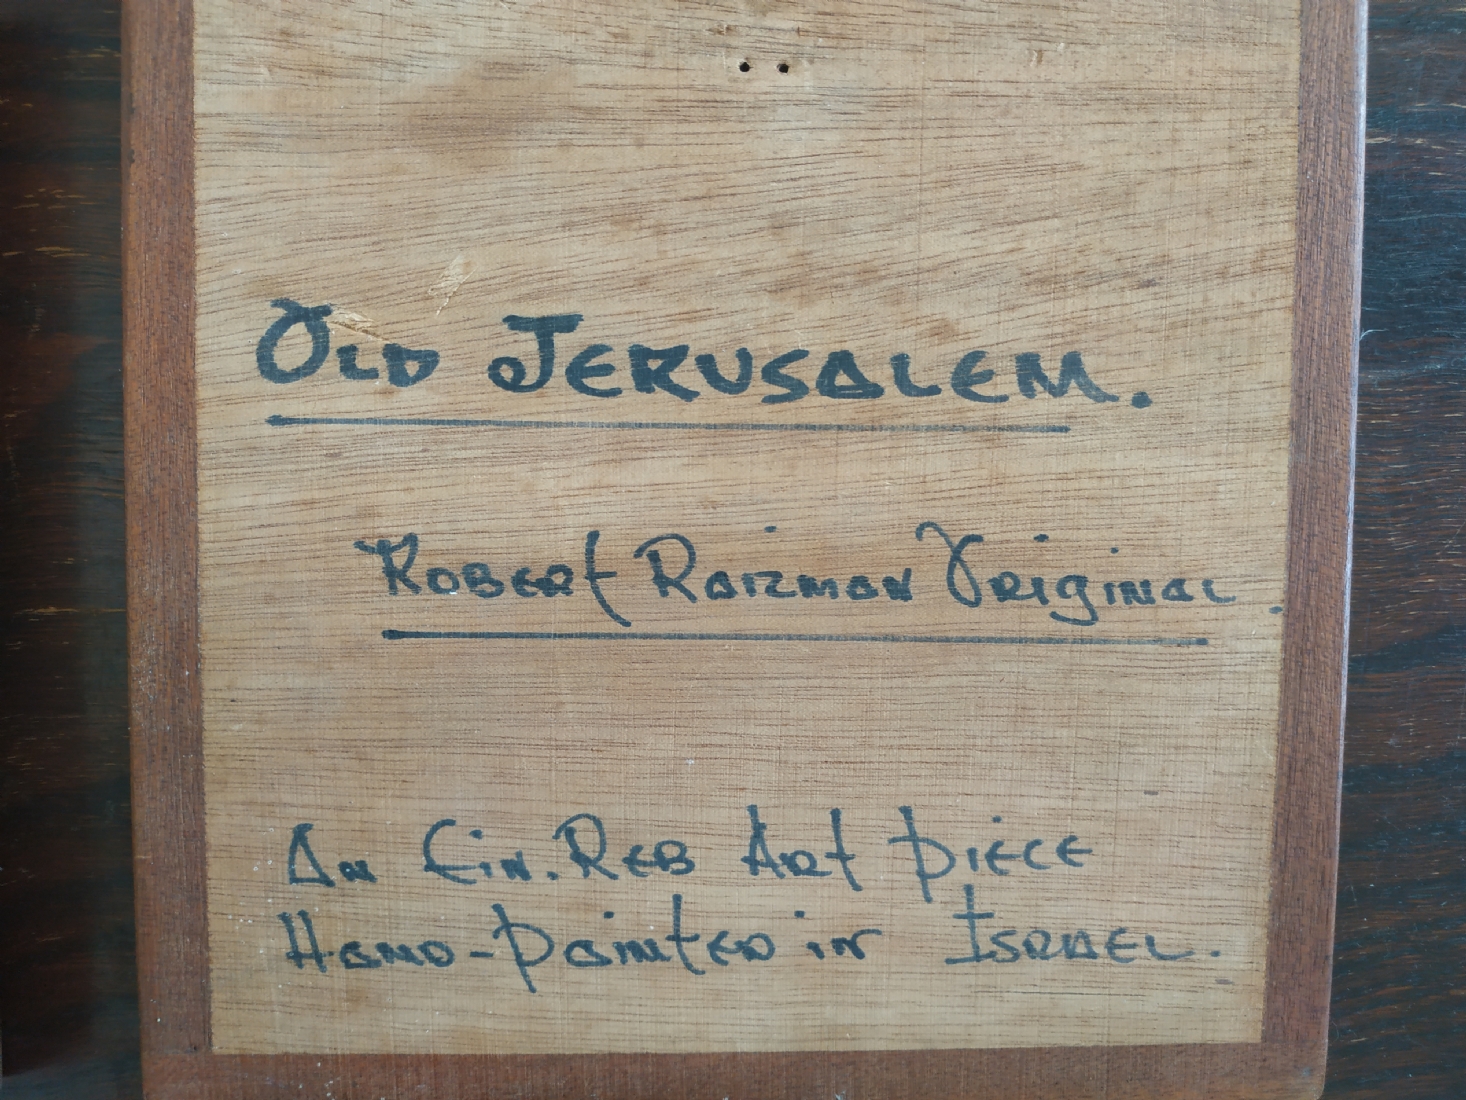 Old Jerusalem.
Robert Raizman Original.
An Ein.Reb Art Piece
Hand-Painted in Israel.